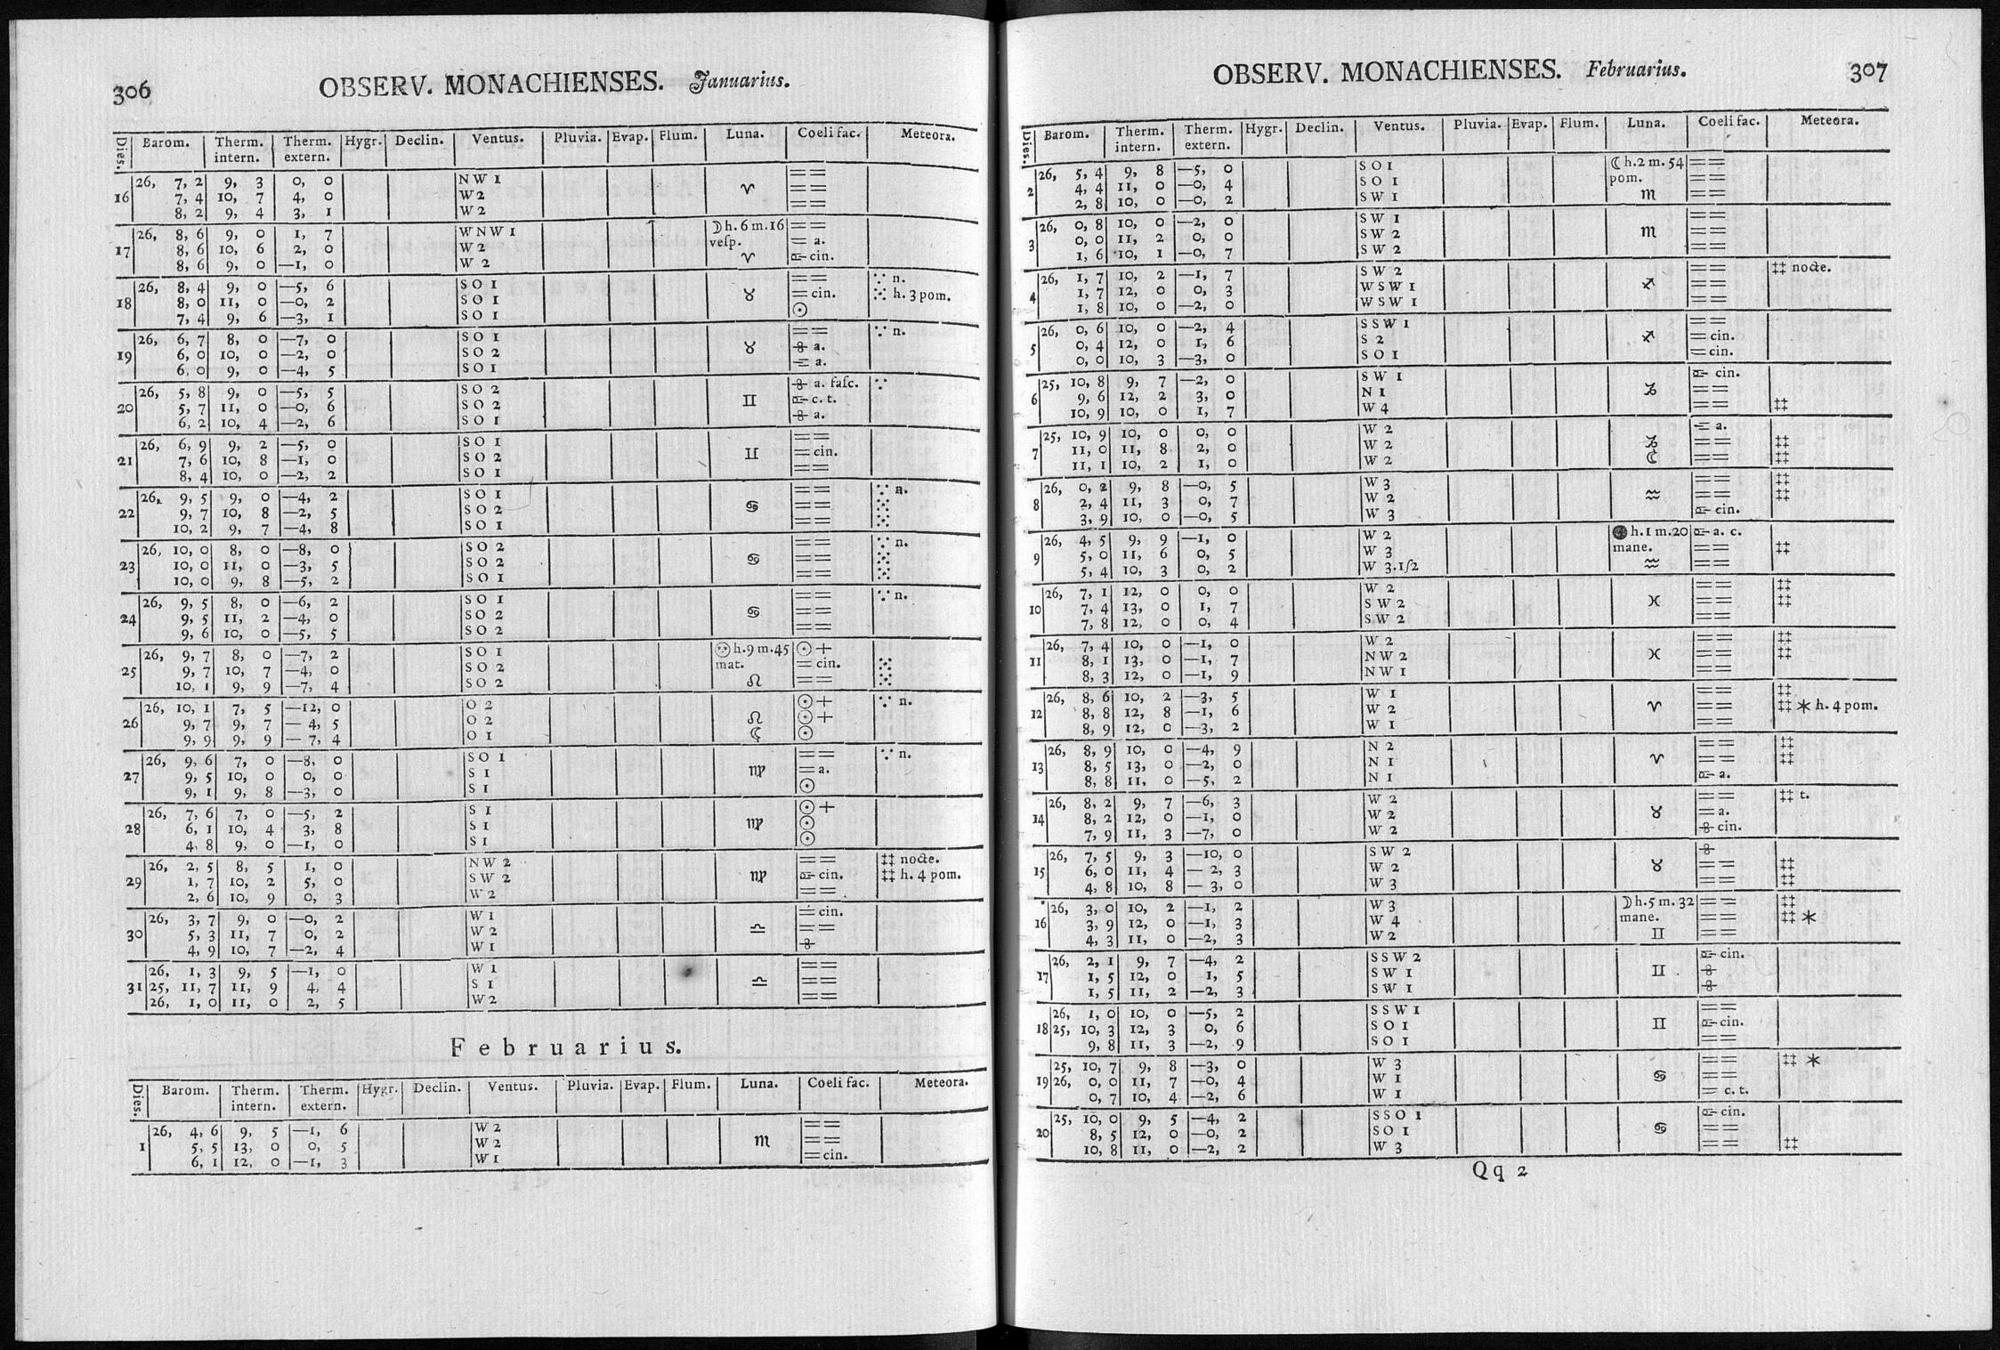 306 OBSERV. MONACHIENSES. Januarius.
Dies. | Barom. | Therm. intern. | Therm. extern. | Hygr. | Declin. | Ventus. | Pluvia. | Evap. | Flum. | Luna. | Coeli fac. | Meteora.
16 | 26, 7, 2 | 9, 3 | 0, 0 | NW 1 | ♈ | ==
7, 4 | 10, 7 | 4, 0 | W 2 | ==
8, 2 | 9, 4 | 3, 1 | W 2 | ==
17 | 26, 8, 6 | 9, 0 | 1, 7 | WNW 1 | ☽ h. 6 m. 16 | ==
8, 6 | 10, 6 | 2, 0 | W 2 | veſp. | = a.
8, 6 | 9, 0 | —1, 0 | W 2 | ♈ | cin.
18 | 26, 8, 4 | 9, 0 | —5, 6 | SO 1 | ♉ | == | ∵ n.
8, 0 | 11, 0 | —0, 2 | SO 1 | = cin. | ⁙ h. 3 pom.
7, 4 | 9, 6 | —3, 1 | SO 1 | ☉
19 | 26, 6, 7 | 8, 0 | —7, 0 | SO 1 | ♉ | == | ∵ n.
6, 0 | 10, 0 | —2, 0 | SO 2 | a.
6, 0 | 9, 0 | —4, 5 | SO 1 | a.
20 | 26, 5, 8 | 9, 0 | —5, 5 | SO 2 | ♊ | a. faſc. | ∵
5, 7 | 11, 0 | —0, 6 | SO 2 | c. t.
6, 2 | 10, 4 | —2, 6 | SO 1 | a.
21 | 26, 6, 9 | 9, 2 | —5, 0 | SO 1 | ♊ | ==
7, 6 | 10, 8 | —1, 0 | SO 2 | = cin.
8, 4 | 10, 0 | —2, 2 | SO 1 | ==
22 | 26, 9, 5 | 9, 0 | —4, 2 | SO 1 | ♋ | == | ∵ n.
9, 7 | 10, 8 | —2, 5 | SO 2 | == | ⁙
10, 2 | 9, 7 | —4, 8 | SO 1 | == | ⁙
23 | 26, 10, 0 | 8, 0 | —8, 0 | SO 2 | ♋ | == | ∵ n.
10, 0 | 11, 0 | —3, 5 | SO 2 | == | ⁙
10, 0 | 9, 8 | —5, 2 | SO 1 | == | ⁙
24 | 26, 9, 5 | 8, 0 | —6, 2 | SO 1 | ♋ | == | ∵ n.
9, 5 | 11, 2 | —4, 0 | SO 2 | ==
9, 6 | 10, 0 | —5, 5 | SO 2 | ==
25 | 26, 9, 7 | 8, 0 | —7, 2 | SO 1 | h. 9 m. 45 | ☉ +
9, 7 | 10, 7 | —4, 0 | SO 2 | mat. | = cin. | ⁙
10, 1 | 9, 9 | —7, 4 | SO 2 | ♌ | == | ⁙
26 | 26, 10, 1 | 7, 5 | —12, 0 | O 2 | ☉ + | ∵ n.
9, 7 | 9, 7 | — 4, 5 | O 2 | ♌ | ☉ +
9, 9 | 9, 9 | — 7, 4 | O 1 | ☾ | ☉
27 | 26, 9, 6 | 7, 0 | —8, 0 | SO 1 | ♍ | == | ∵ n.
9, 5 | 10, 0 | 0, 0 | S 1 | = a.
9, 1 | 9, 8 | —3, 0 | S 1 | ☉
28 | 26, 7, 6 | 7, 0 | —5, 2 | S 1 | ♍ | ☉ +
6, 1 | 10, 4 | 3, 8 | S 1 | ☉
4, 8 | 9, 0 | —1, 0 | S 1 | ☉
29 | 26, 2, 5 | 8, 5 | 1, 0 | NW 2 | ♍ | == | ‡‡ nocte.
1, 7 | 10, 2 | 5, 0 | SW 2 | cin. | ‡‡ h. 4 pom.
2, 6 | 10, 9 | 0, 3 | W 2 | ==
30 | 26, 3, 7 | 9, 0 | —0, 2 | W 1 | ♎ | cin.
5, 3 | 11, 7 | 0, 2 | W 2 | ==
4, 9 | 10, 7 | —2, 4 | W 1
31 | 26, 1, 3 | 9, 5 | —1, 0 | W 1 | ♎ | ==
25, 11, 7 | 11, 9 | 4, 4 | S 1 | ==
26, 1, 0 | 11, 0 | 2, 5 | W 2 | ==
Februarius.
Dies. | Barom. | Therm. intern. | Therm. extern. | Hygr. | Declin. | Ventus. | Pluvia. | Evap. | Flum. | Luna. | Coeli fac. | Meteora.
1 | 26, 4, 6 | 9, 5 | —1, 6 | W 2 | ♏ | ==
5, 5 | 13, 0 | 0, 5 | W 2 | ==
6, 1 | 12, 0 | —1, 3 | W 1 | = cin.
OBSERV. MONACHIENSES. Februarius. 307
Dies. | Barom. | Therm. intern. | Therm. extern. | Hygr. | Declin. | Ventus. | Pluvia. | Evap. | Flum. | Luna. | Coeli fac. | Meteora.
2 | 26, 5, 4 | 9, 8 | —5, 0 | SO 1 | ☾ h. 2 m. 54 | ==
4, 4 | 11, 0 | —0, 4 | SO 1 | pom. | ==
2, 8 | 10, 0 | —0, 2 | SW 1 | ♏ | ==
3 | 26, 0, 8 | 10, 0 | —2, 0 | SW 1 | ♏ | ==
0, 0 | 11, 2 | 0, 0 | SW 2 | ==
1, 6 | 10, 1 | —0, 7 | SW 2 | ==
4 | 26, 1, 7 | 10, 2 | —1, 7 | SW 2 | ♐ | == | ‡‡ nocte.
1, 7 | 12, 0 | 0, 3 | WSW 1 | ==
1, 8 | 10, 0 | —2, 0 | WSW 1 | ==
5 | 26, 0, 6 | 10, 0 | —2, 4 | SSW 1 | ♐ | ==
0, 4 | 12, 0 | 1, 6 | S 2 | = cin.
0, 0 | 10, 3 | —3, 0 | SO 1 | = cin.
6 | 25, 10, 8 | 9, 7 | —2, 0 | SW 1 | ♑ | cin.
9, 6 | 12, 2 | 3, 0 | N 1 | ==
10, 9 | 10, 0 | 1, 7 | W 4 | == | ‡‡
7 | 25, 10, 9 | 10, 0 | 0, 0 | W 2 | a.
11, 0 | 11, 8 | 2, 0 | W 2 | ♑ | == | ‡‡
11, 1 | 10, 2 | 1, 0 | W 2 | ☾ | == | ‡‡
8 | 26, 0, 2 | 9, 8 | —0, 5 | W 3 | ♒ | == | ‡‡
2, 4 | 11, 3 | 0, 7 | W 2 | == | ‡‡
3, 9 | 10, 0 | —0, 5 | W 3 | cin.
9 | 26, 4, 5 | 9, 9 | —1, 0 | W 2 | h. 1 m. 20 | a. c.
5, 0 | 11, 6 | 0, 5 | W 3 | mane. | == | ‡‡
5, 4 | 10, 3 | 0, 2 | W 3.1/2 | ♒ | ==
10 | 26, 7, 1 | 12, 0 | 0, 0 | W 2 | ♓ | == | ‡‡
7, 4 | 13, 0 | 1, 7 | SW 2 | == | ‡‡
7, 8 | 12, 0 | 0, 4 | SW 2 | ==
11 | 26, 7, 4 | 10, 0 | —1, 0 | W 2 | ♓ | == | ‡‡
8, 1 | 13, 0 | —1, 7 | NW 2 | == | ‡‡
8, 3 | 12, 0 | —1, 9 | NW 1 | ==
12 | 26, 8, 6 | 10, 2 | —3, 5 | W 1 | ♈ | == | ‡‡
8, 8 | 12, 8 | —1, 6 | W 2 | == | ‡‡ ✳ h. 4 pom.
8, 9 | 12, 0 | —3, 2 | W 1 | ==
13 | 26, 8, 9 | 10, 0 | —4, 9 | N 2 | ♈ | == | ‡‡
8, 5 | 13, 0 | —2, 0 | N 1 | == | ‡‡
8, 8 | 11, 0 | —5, 2 | N 1 | a.
14 | 26, 8, 2 | 9, 7 | —6, 3 | W 2 | ♉ | == | ‡‡ t.
8, 2 | 12, 0 | —1, 0 | W 2 | = a.
7, 9 | 11, 3 | —7, 0 | W 2 | cin.
15 | 26, 7, 5 | 9, 3 | —10, 0 | SW 2 | ♉
6, 0 | 11, 4 | — 2, 3 | W 2 | == | ‡‡
4, 8 | 10, 8 | — 3, 0 | W 3 | == | ‡‡
16 | 26, 3, 0 | 10, 2 | —1, 2 | W 3 | ☽ h. 5 m. 32 | == | ‡‡
3, 9 | 12, 0 | —1, 3 | W 4 | mane. | == | ‡‡ ✳
4, 3 | 11, 0 | —2, 3 | W 2 | ♊ | ==
17 | 26, 2, 1 | 9, 7 | —4, 2 | SSW 2 | ♊ | cin.
1, 5 | 12, 0 | 1, 5 | SW 1
1, 5 | 11, 2 | —2, 3 | SW 1
18 | 26, 1, 0 | 10, 0 | —5, 2 | SSW 1 | ♊ | ==
25, 10, 3 | 12, 3 | 0, 6 | SO 1 | cin.
9, 8 | 11, 3 | —2, 9 | SO 1 | ==
19 | 25, 10, 7 | 9, 8 | —3, 0 | W 3 | ♋ | == | ‡‡ ✳
26, 0, 0 | 11, 7 | —0, 4 | W 1 | ==
0, 7 | 10, 4 | —2, 6 | W 1 | = c. t.
20 | 25, 10, 0 | 9, 5 | —4, 2 | SSO 1 | ♋ | cin.
8, 5 | 12, 0 | —0, 2 | SO 1 | ==
10, 8 | 11, 0 | —2, 2 | W 3 | == | ‡‡
Qq 2